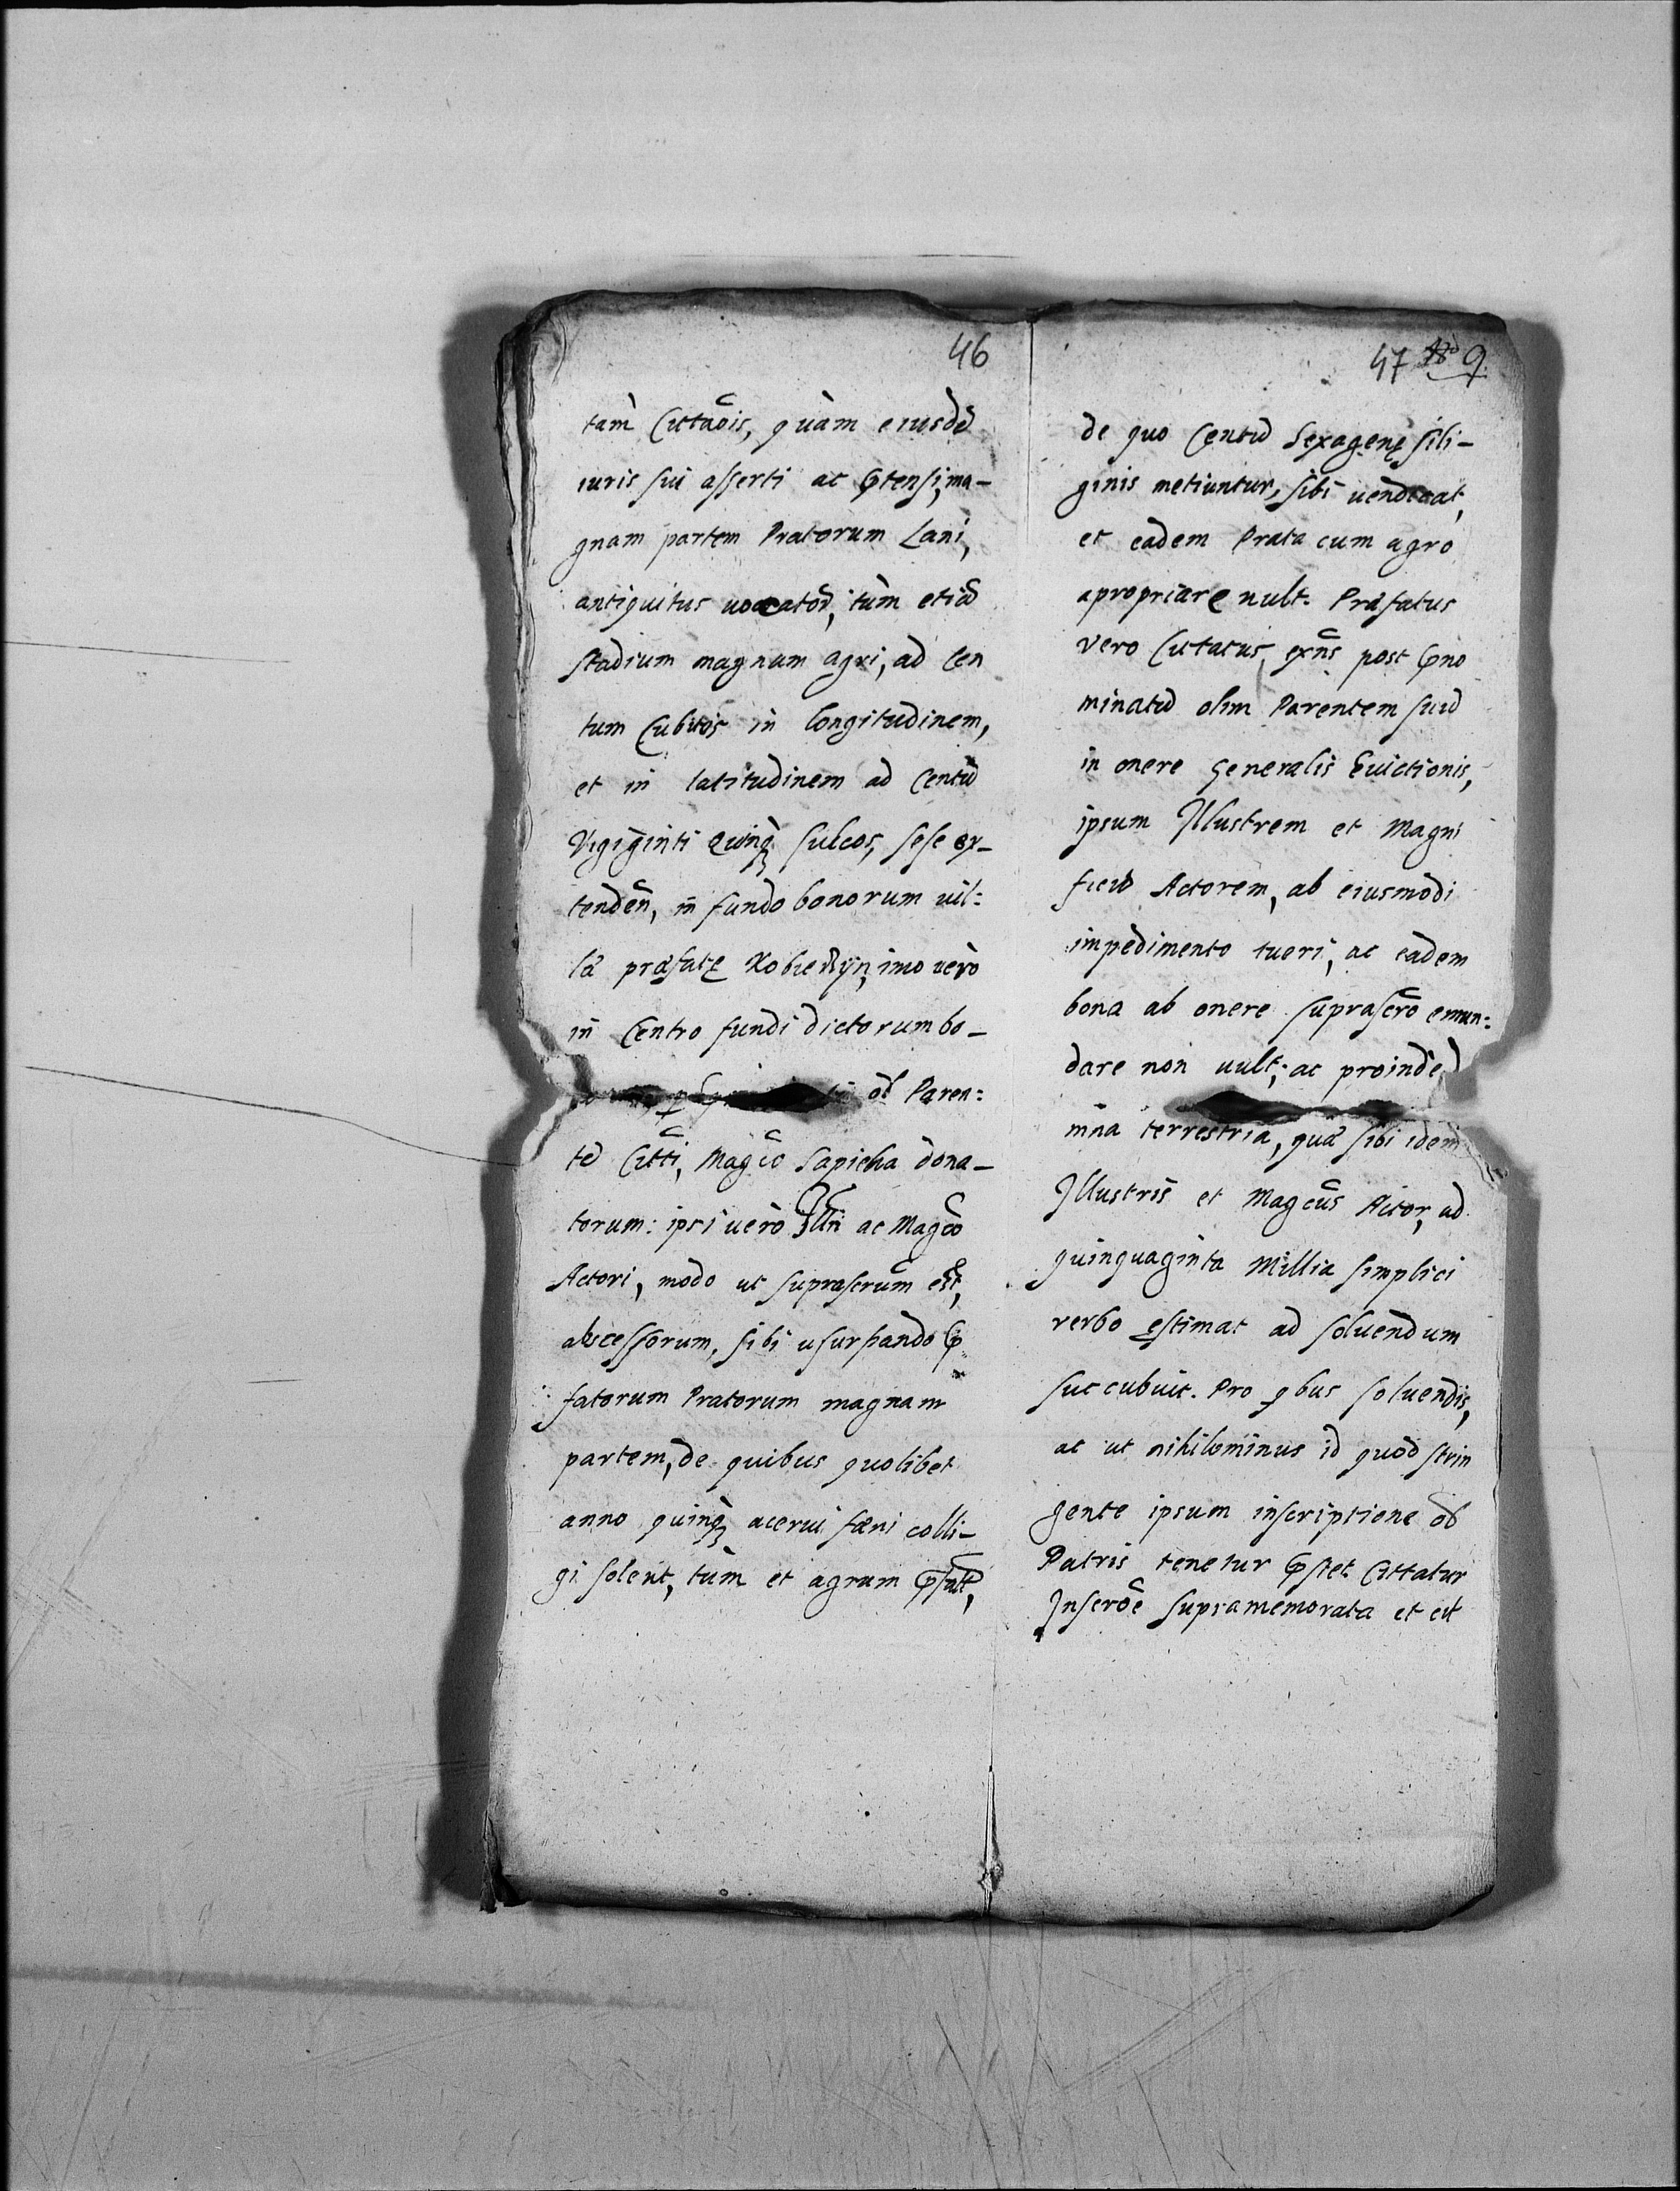 46
tam̀ Cittãois, quàm eiusdẽ
iuris sui asserti ac ptensi, ma-
gnam partem Pratorum Lani,
antiquitus uocatorũ, tùm etiã
stadium magnum agri, ad Cen
tum Cubitos in longitudinem,
et in latitudinem ad Centũ
Vigiginti Quinq̀ sulcos, sese ex-
tendeñ, in fundo bonorum uil-
læ præfatę Kobierzyn, imo uerò
in Centro fundi dictorum bo-
ol Paren:
tẽ Citti, Magco Sapieha dona-
torum: ipsi uerò Illri ac Magco
Actori, modo ut suprascrum est,
abscessorum, sibi usurpando p
fatorum Pratorum magnam
partem, de quibus quolibet
anno quinq̀ acerui fœni colli-
gi solent, tùm et agrum psatũ,
47 9
de quo Centũ Sexagenę sili-
ginis metiuntur, sibi uendicat,
et eadem Prata cum agro
apropriare uult. Præfatus
vero Citatus, exñs post pno
minatũ olim Parentem suũ
in onere generalis Euictionis,
ipsum Illustrem et Magni
ficũ Actorem, ab eiusmodi
impedimento tueri, ac eadem
bona ab onere suprascro emun:
dare non uult; ac proinde d
mna terrestria, quæ sibi idem
Illustris et Magcus Actor, ad
quinquaginta Millia simplici
verbo ęstimat ad soluendum
succubuit. Pro qbus soluendis,
ac ut nihilominus id quod strin
gente ipsum inscriptione ol
Patris tenetur pstet Cittatur
Inscroe supramemorata et eit